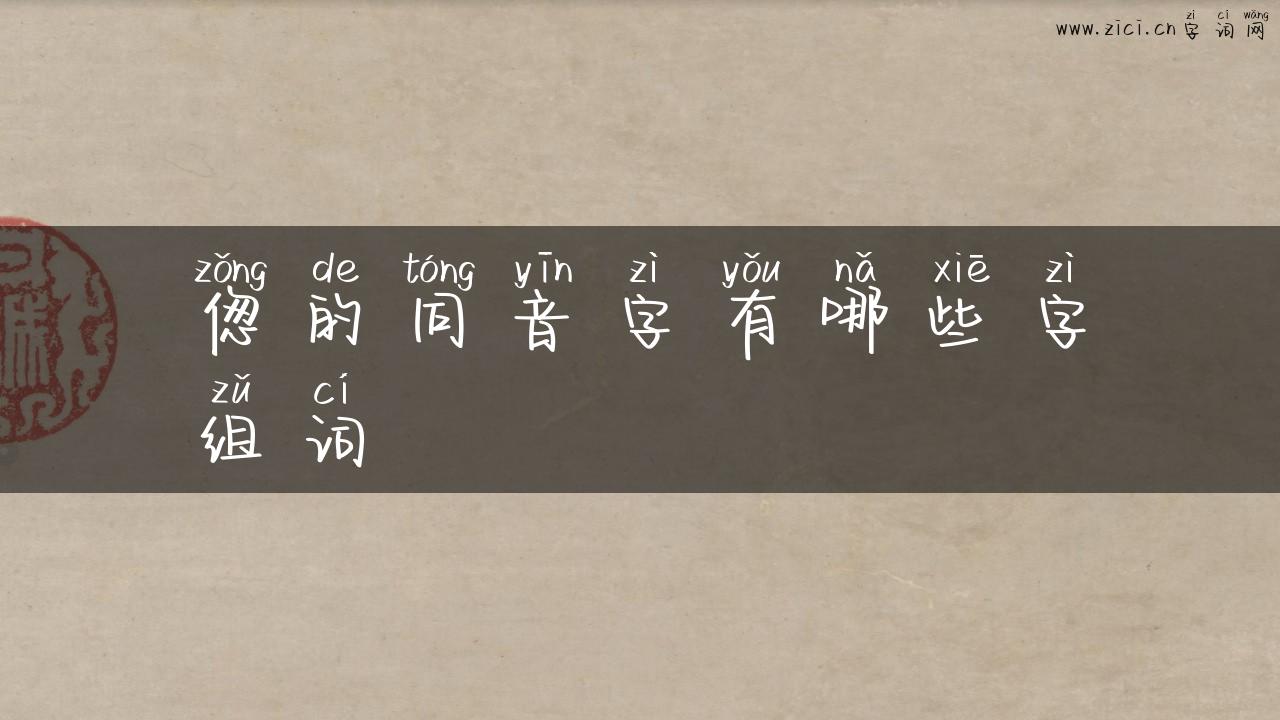 www.zici.cn字词网
zì cí wǎng
zǒng de tóng yīn zì yǒu nǎ xiē zì
偬的同音字有哪些字
zǔ cí
组词